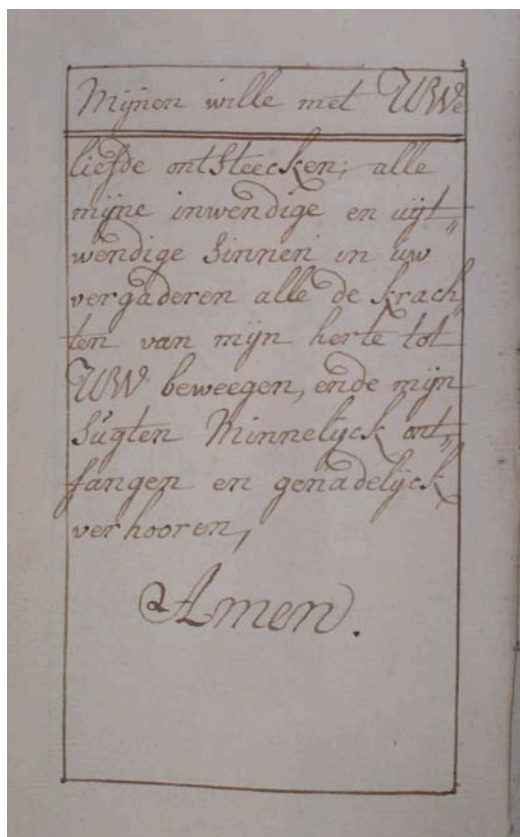 Mijnen wille met UWe
liefde ontsteecken; alle
mijne inwendige en uijt„
wendige sinnen in uw
vergaderen alle de krach
ten van mijn herte tot
UW beweegen, ende mijn
sŭgten Minnelijck ont„
fangen en genadelijck
verhooren,
Amen.